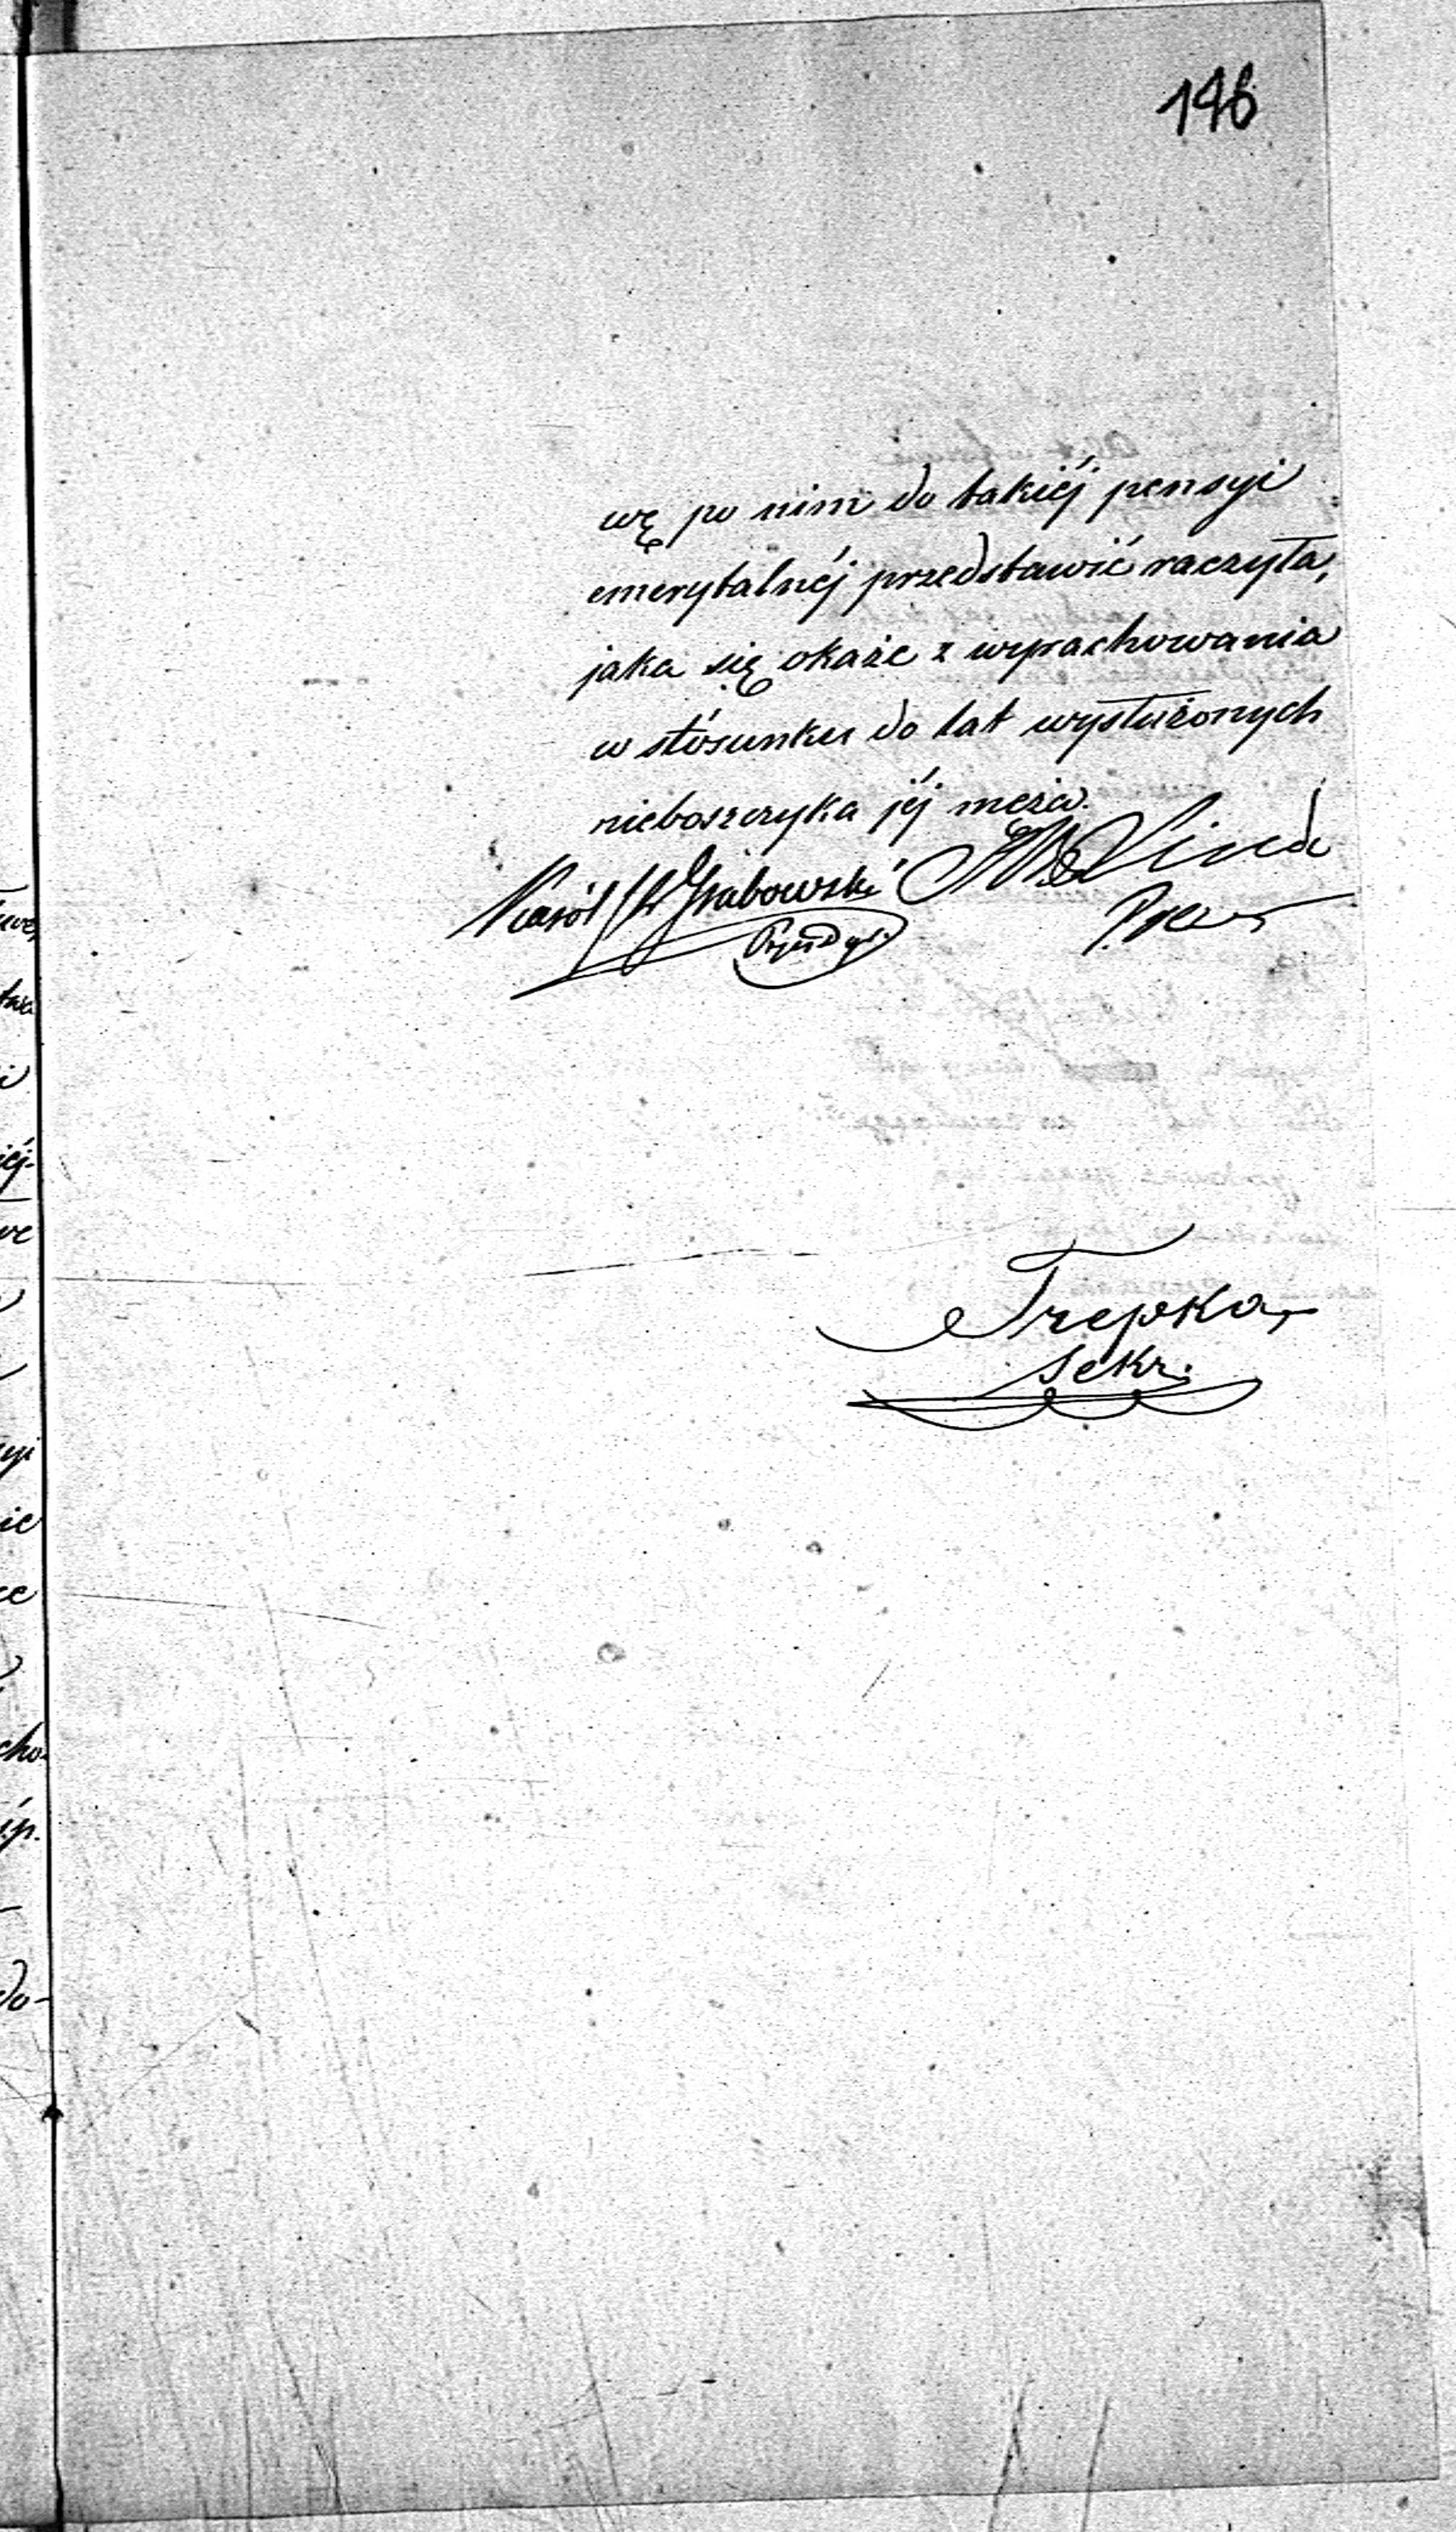 146
wę po nim do takiéj pensyi
emerytalnéj przedstawić raczyła,
jaka się okaże z wyrachowania
w stósunku do lat wysłużonych
nieboszczyka jéj męża.
Karól Grabowski Linde
Prezes
Trepka
Sekr.